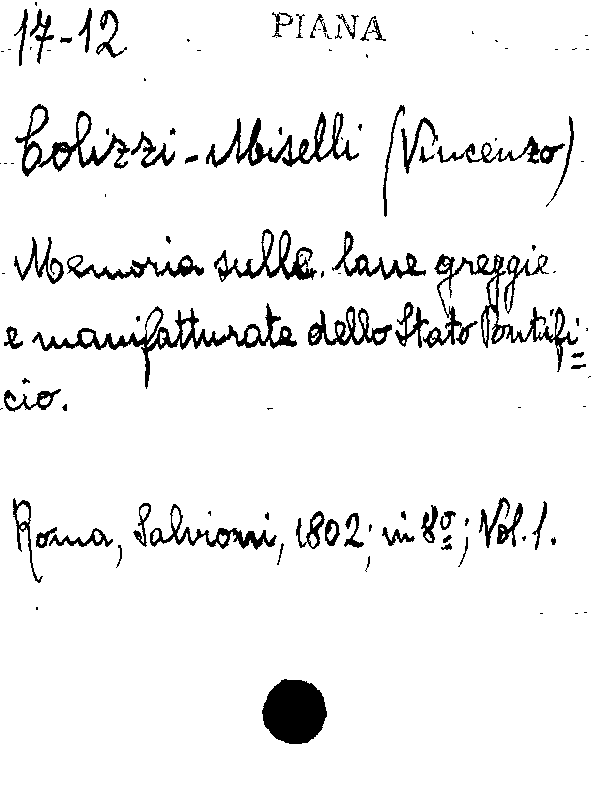 17-12 PIANA
Colizzi-Miselli (Vincenzo)
Memoria sulle lane greggie
e manifatturate dello Stato Pontifi=
cio.
Roma, Salvioni, 1802; in 8º; Vol. 1.